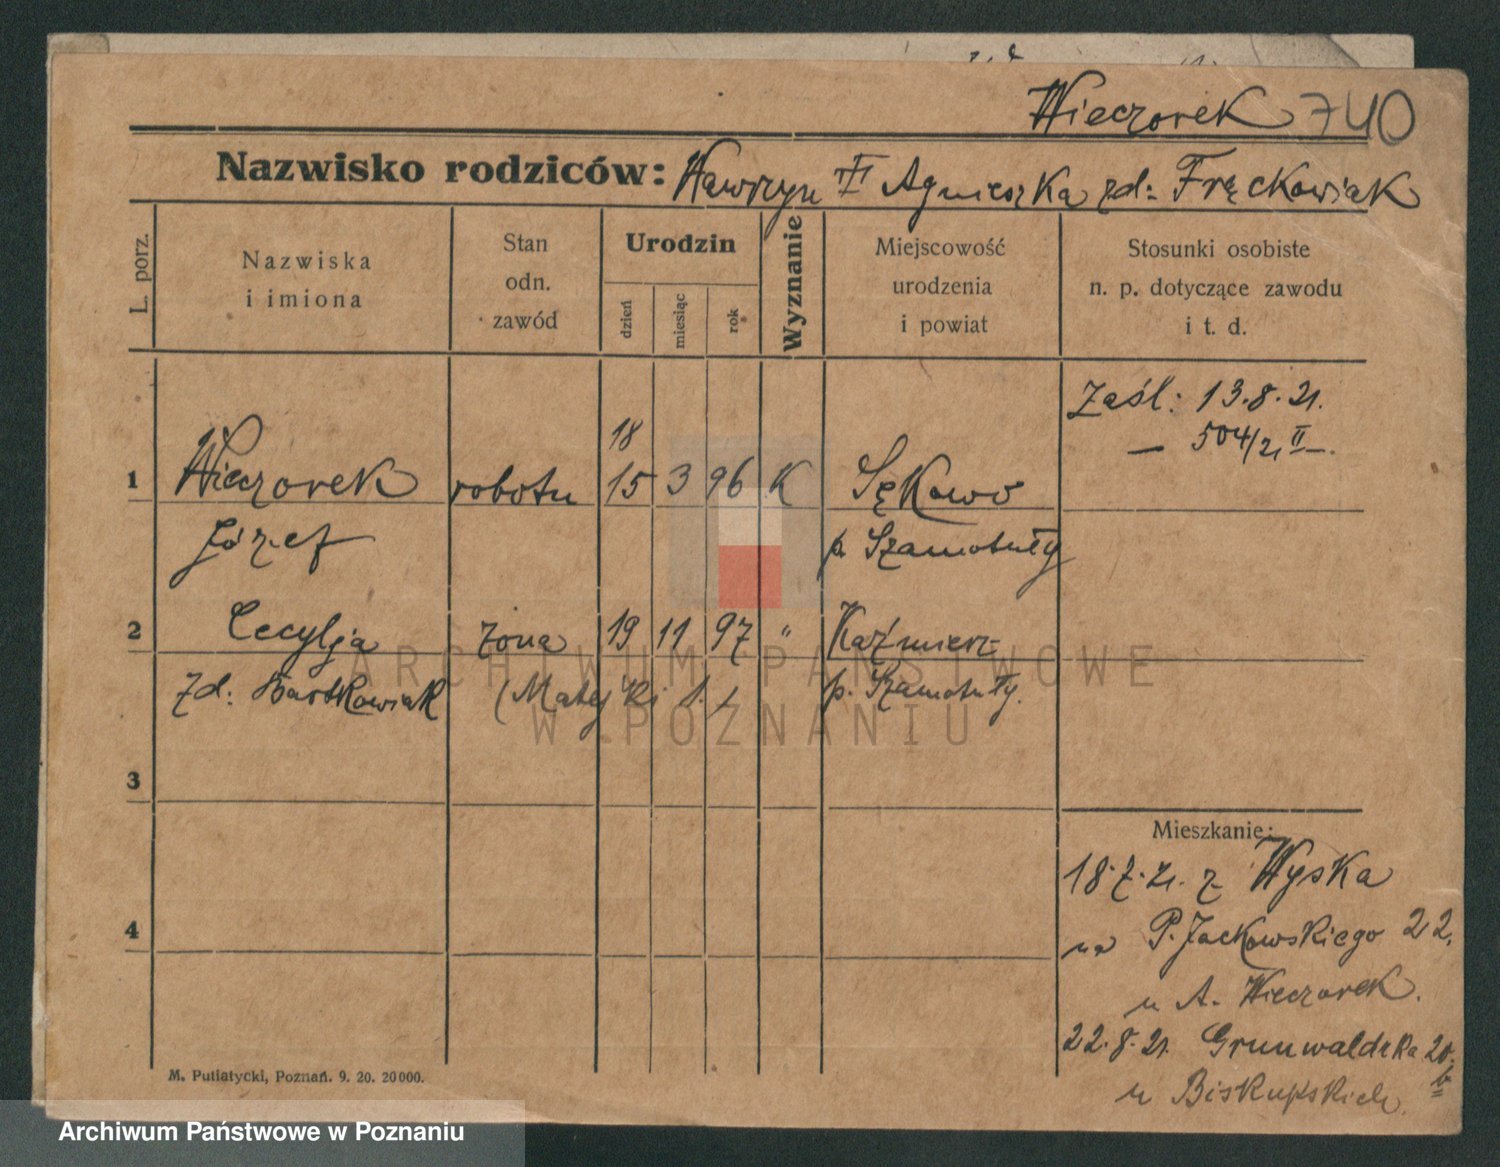 Wieczorek 740
Nazwisko rodziców: Wawrzyn † Agnieszka zd: Frąckowiak
L. porz.
Nazwiska
i imiona
Stan
odn.
zawód
Urodzin
dzień
miesiąc
rok
Wyznanie
Miejscowość
urodzenia
i powiat
Stosunki osobiste
n. p. dotyczące zawodu
i t. d.
Zaśl: 13.8.21.
— 504/21 II —.
18
1 Wieczorek robotn 15 3 96 K Sękowo
Józef p. Szamotuły
2 Cecylja żona 19 11 97 " Kaźmierz
zd: Bartkowiak (Matejki 1.) p. Szamotuły.
3
4
Mieszkanie:
18.7.21. z Wyska
na P. Jackowskiego 22.
u A. Wieczorek.
22.8.21. Grunwaldzka 20.
b
u Biskupskich.
M. Putiatycki, Poznań. 9. 20. 20 000.
ARCHIWUM PAŃSTWOWE
W POZNANIU
Archiwum Państwowe w Poznaniu